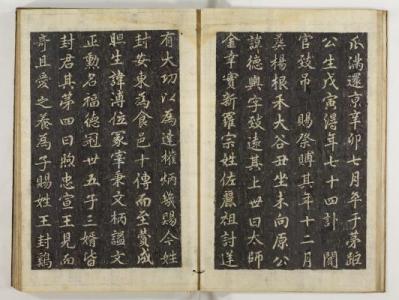 瓜滿還京辛卯七月卒于第距
公生戊寅得年七十四訃聞
官致吊 賜祭賻其年十二月
葬楊根木大谷丑坐未向原公
諱德興字致遠其上世曰太師
金幸實新羅宗姓佐麗祖討逆
有大功以為達權炳幾賜今姓
封安東為食邑十傳而至贊成
㫜生諱溥位冢宰秉文柄謚文
正勳名福德冠世五子三婿皆
封君其第四曰煦忠宣王見而
奇且愛之養為子賜姓王封鷄